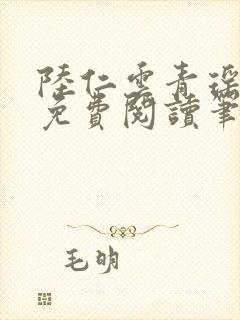 陸仁雲青瑶
免費閱讀筆
毛明